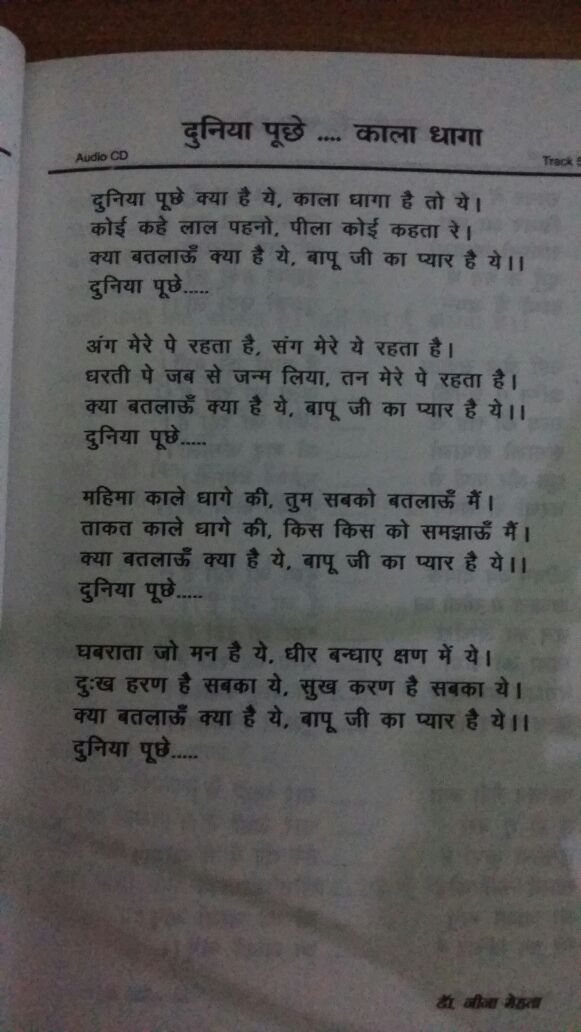 दुनिया पूछे .... काला धागा
Audio CD
Track 5
दुनिया पूछे क्या है ये, काला धागा है तो ये।
कोई कहे लाल पहनो, पीला कोई कहता रे।
क्या बतलाऊँ क्या है ये, बापू जी का प्यार है ये।।
दुनिया पूछे.....
अंग मेरे पे रहता है, संग मेरे ये रहता है।
धरती पे जब से जन्म लिया, तन मेरे पे रहता है।
क्या बतलाऊँ क्या है ये, बापू जी का प्यार है ये।।
दुनिया पूछे.....
महिमा काले धागे की, तुम सबको बतलाऊँ मैं।
ताकत काले धागे की, किस किस को समझाऊँ मैं।
क्या बतलाऊँ क्या है ये, बापू जी का प्यार है ये।।
दुनिया पूछे.....
घबराता जो मन है ये, धीर बन्धाए क्षण में ये।
दुःख हरण है सबका ये, सुख करण है सबका ये।
क्या बतलाऊँ क्या है ये, बापू जी का प्यार है ये।।
दुनिया पूछे.....
डॅा. नीना मेहता